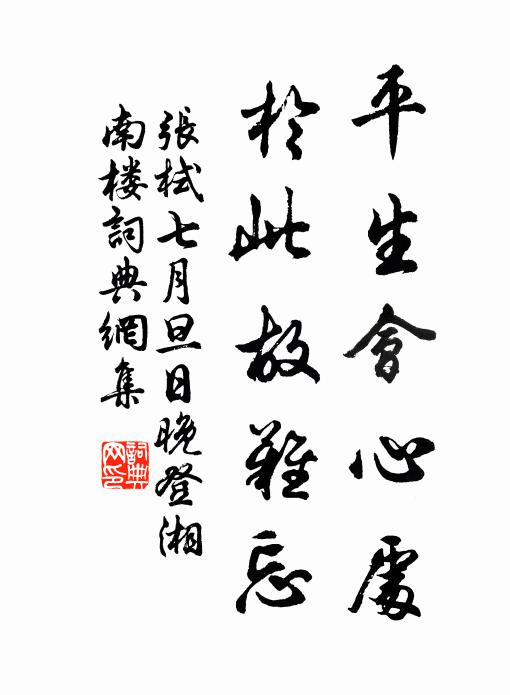 平生會心處
於此故難忘
張栻七月旦日晚登湘
南楼詞典網集
詞典
网印